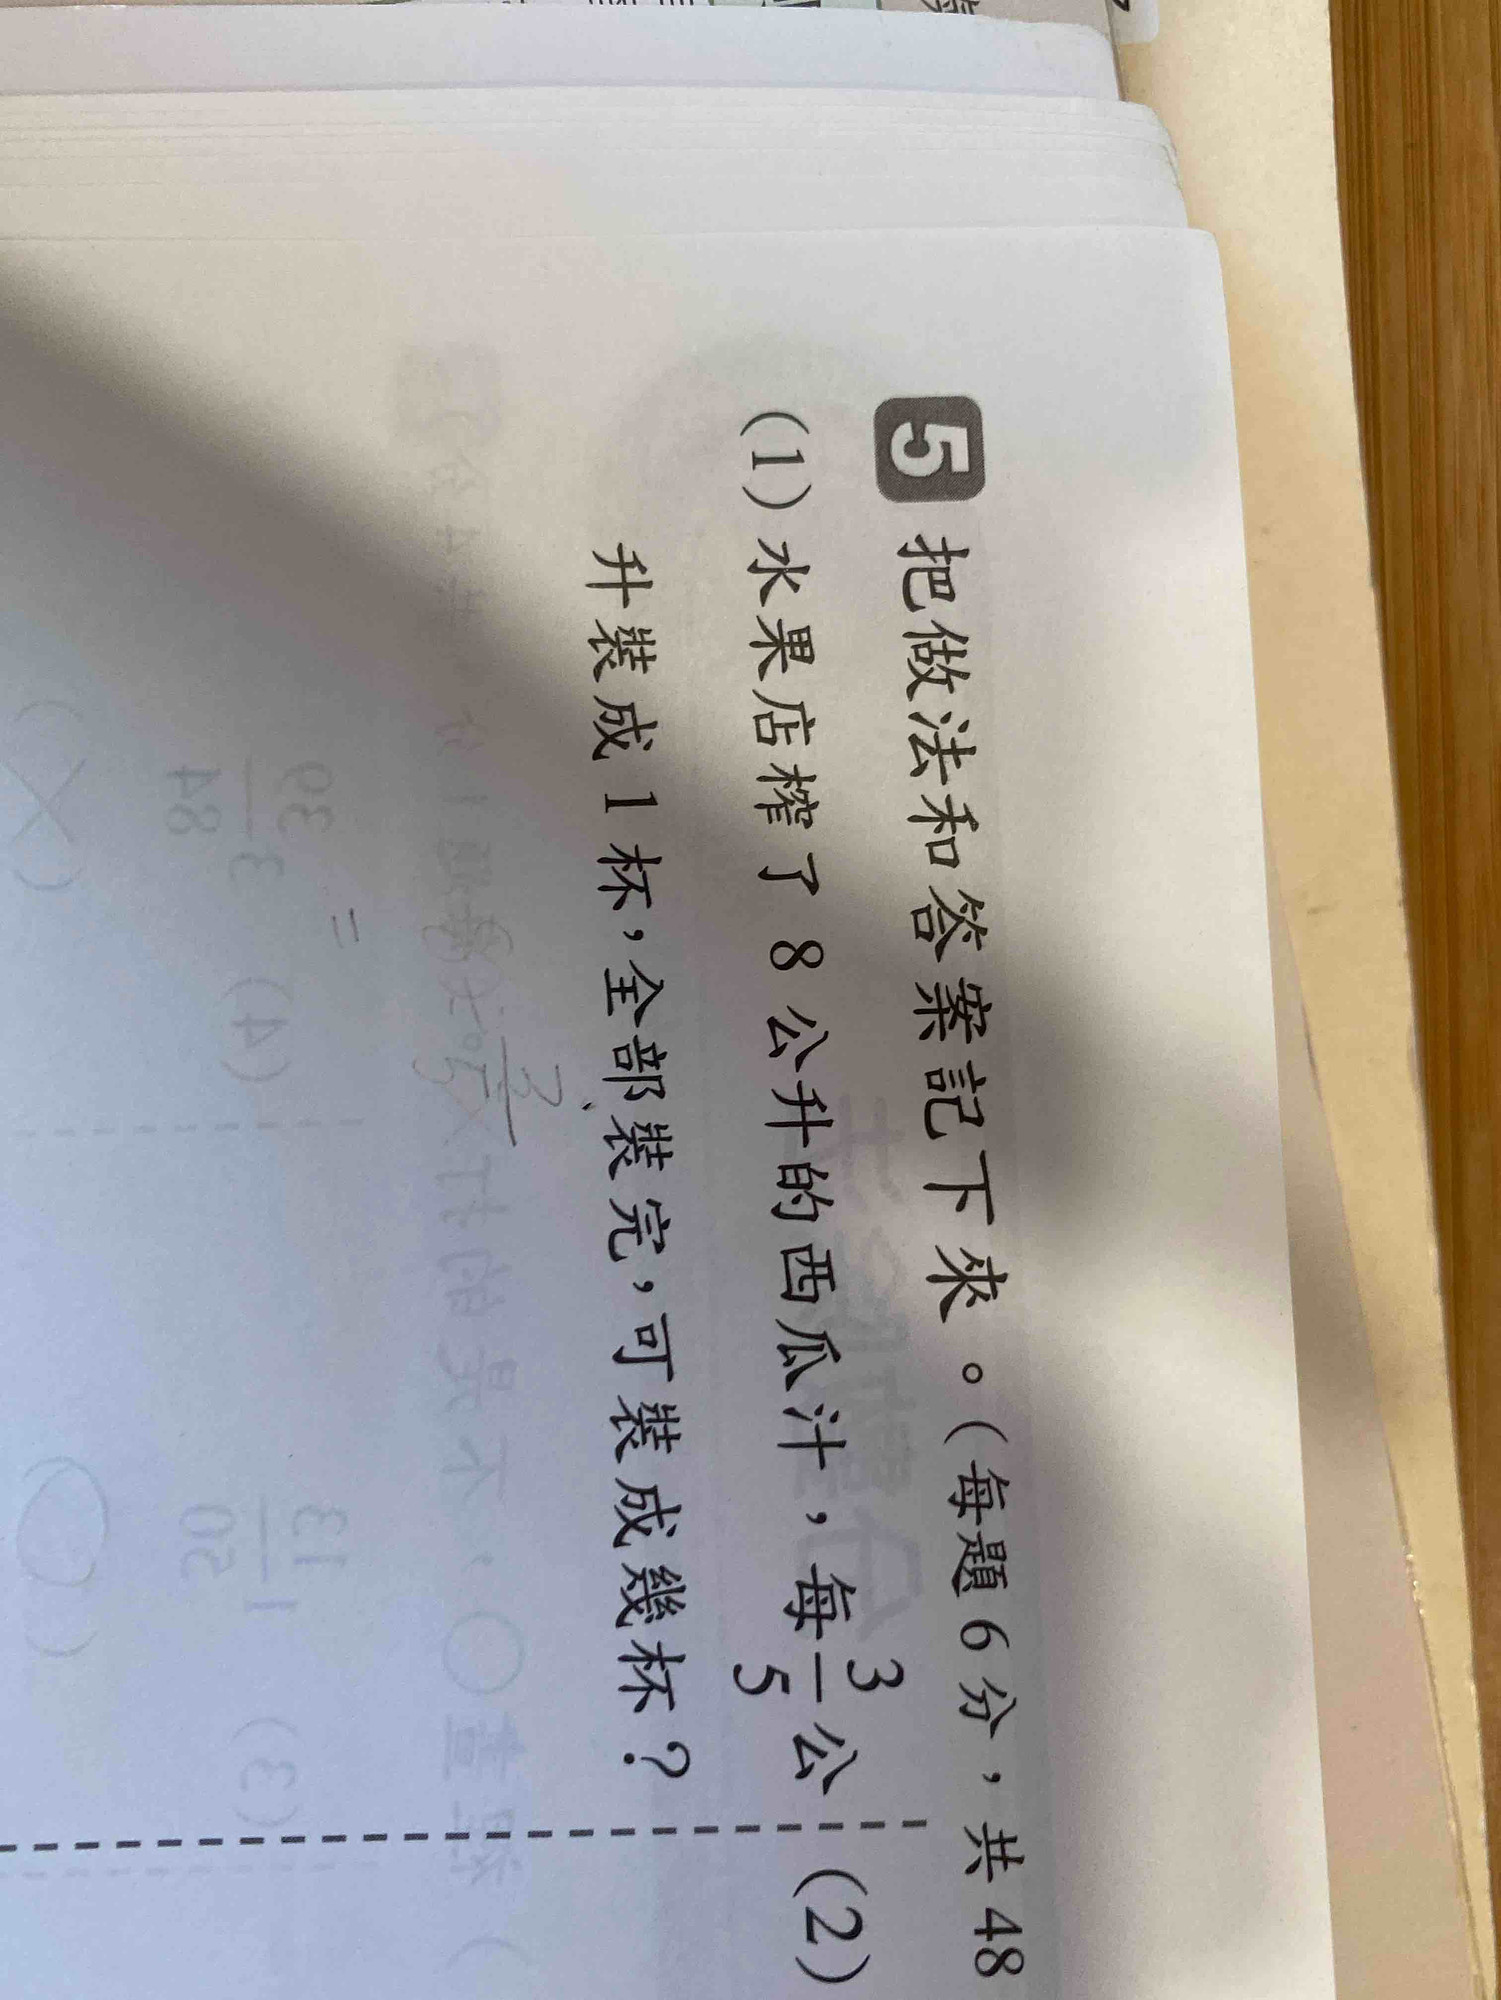 5 把做法和答案記下來。(每題6分，共48
(1) 水果店榨了8公升的西瓜汁，每3/5公
升裝成1杯，全部裝完，可裝成幾杯？
(2)